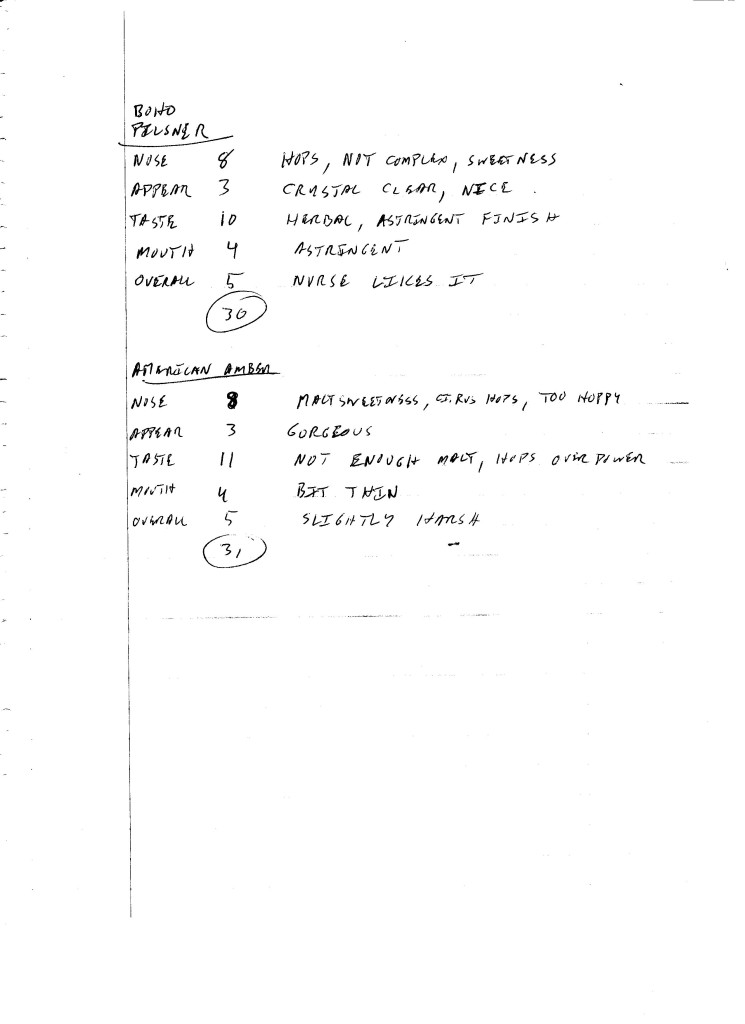 BOHO
PILSNER
NOSE 8 HOPS, NOT COMPLEX, SWEETNESS
APPEAR 3 CRYSTAL CLEAR, NICE.
TASTE 10 HERBAL, ASTRINGENT FINISH
MOUTH 4 ASTRINGENT
OVERALL 5 NURSE LIKES IT
30
AMERICAN AMBER
NOSE 8 MALT SWEETNESS, CITRUS HOPS, TOO HOPPY
APPEAR 3 GORGEOUS
TASTE 11 NOT ENOUGH MALT, HOPS OVER POWER
MOUTH 4 BIT THIN
OVERALL 5 SLIGHTLY HARSH
31